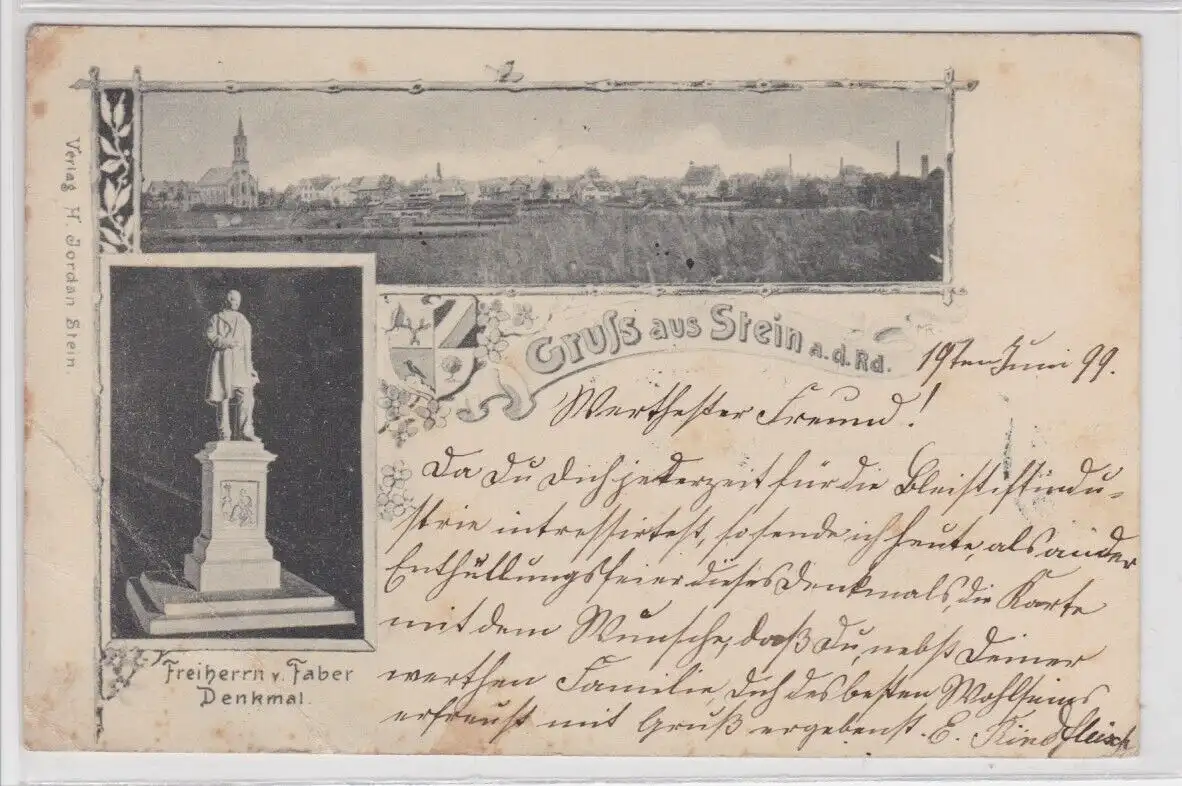 Verlag H. Jordan Stein.
Gruss aus Stein a.d.Rd.
MR
19ten Juni 99.
Werthester Freund!
Da Du Dich jederzeit für die Bleistiftindu-
strie intressirtest, so sende ich heute, als an der
Enthüllungsfeier dieses Denkmals, die Karte
mit dem Wunsche, daß Du, nebst Deiner
werthen Familie, Dich des besten Wohlseins
erfreust mit Gruß ergebenst. E. Rindfleisch
Freiherrn v. Faber
Denkmal.